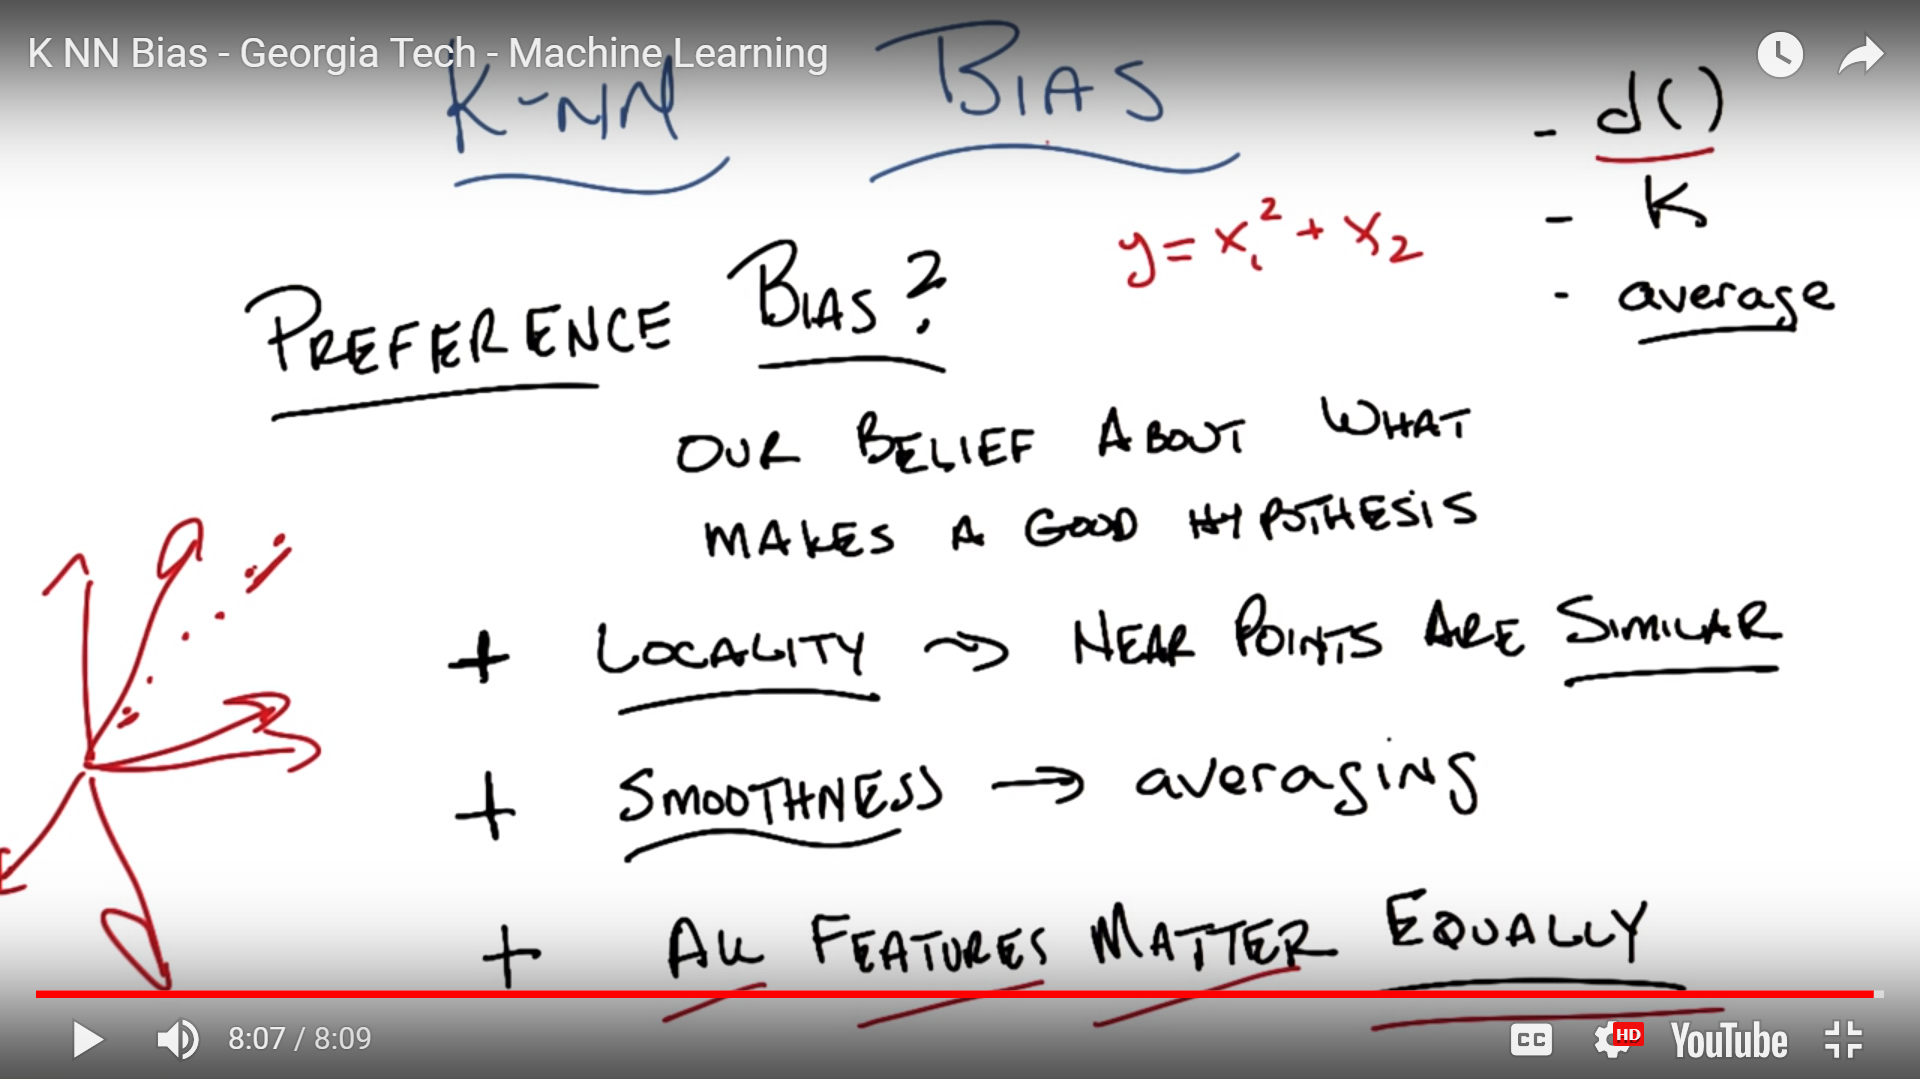 K NN Bias - Georgia Tech - Machine Learning
K-NN BIAS
- d()
- K
- average
y = x₁² + x₂
PREFERENCE BIAS?
OUR BELIEF ABOUT WHAT
MAKES A GOOD HYPOTHESIS
+ LOCALITY → NEAR POINTS ARE SIMILAR
+ SMOOTHNESS → averaging
+ ALL FEATURES MATTER EQUALLY
8:07 / 8:09
CC
HD
YouTube